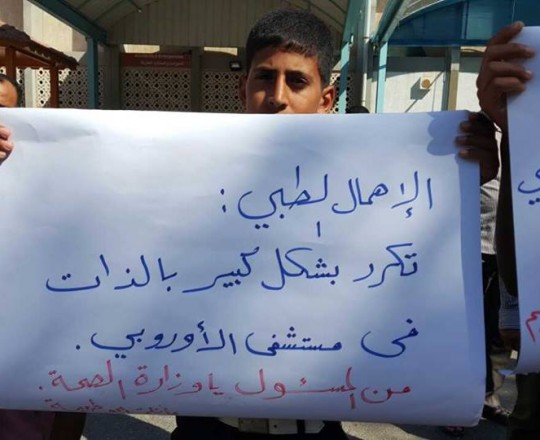 الإهمال الطبي :
تكرر بشكل كبير بالذات
في مستشفى الأوروبي .
من المسئول يا وزارة الصحة .
ي
م